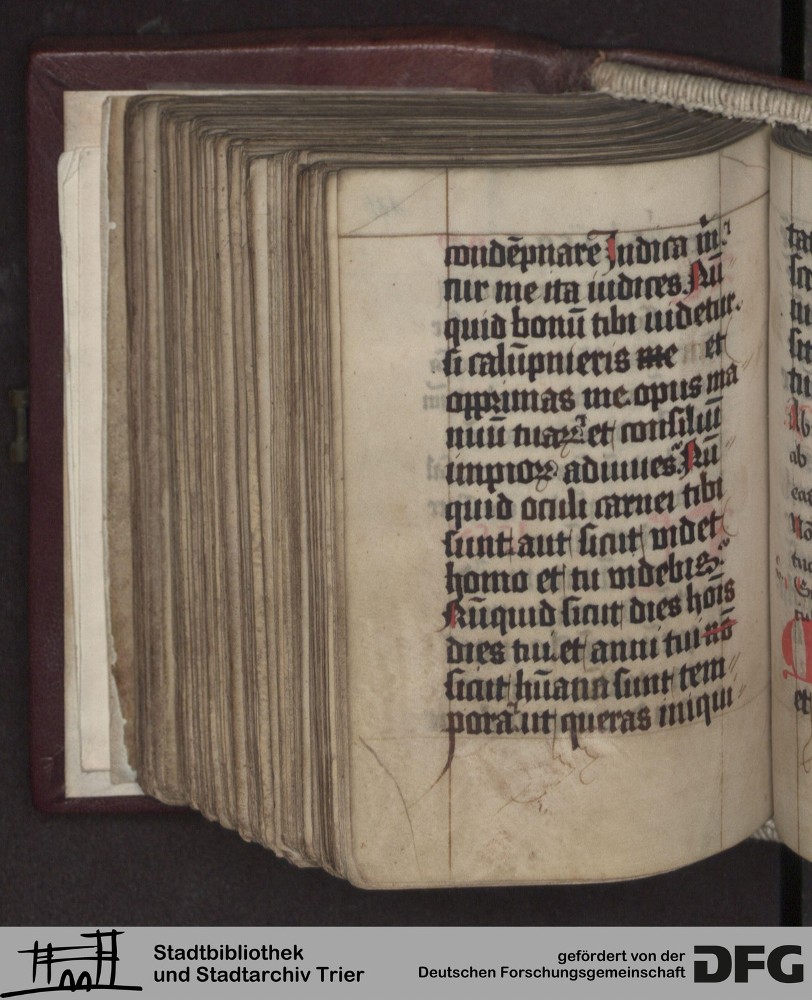 condēpnare Judica m̄
cur me ita iudices. Nū
quid bonū tibi uidetur.
si calūpnieris me et
opprimas me opus ma
nuū tuaꝝ et consiliū
impioꝝ adiuues. Nū
quid oculi carnei tibi
sunt aut sicut videt
homo et tu videbis.
Nūquid sicut dies hoīs
dies tui et anni tui
sicut hūana sunt tem
pora ut queras iniqui
Stadtbibliothek
und Stadtarchiv Trier
gefördert von der
Deutschen Forschungsgemeinschaft
DFG